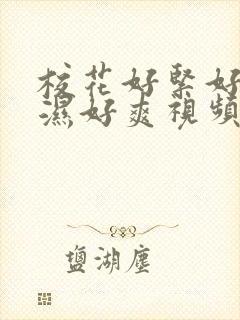 校花好緊好
濕好爽視頻
鹽湖塵